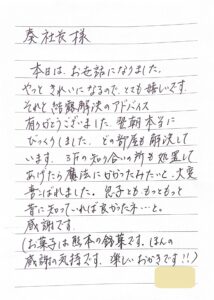 奏社長様
本日は、お世話になりました。
やっと きれいになるので、とても嬉しいです。
それと 結露解決のアドバイス
有りがとうございました。翌朝本当に
びっくりしました。どの部屋も解決して
います。3戸の知り合いの所も処置して
あげたら魔法にかかったみたいと、大変
喜ばれました。息子とも もっともっと
昔に知っていれば良かったネ…と。
感謝です。
(お菓子は熊本の銘菓です。ほんの
感謝の気持です。楽しいおかしです!!)